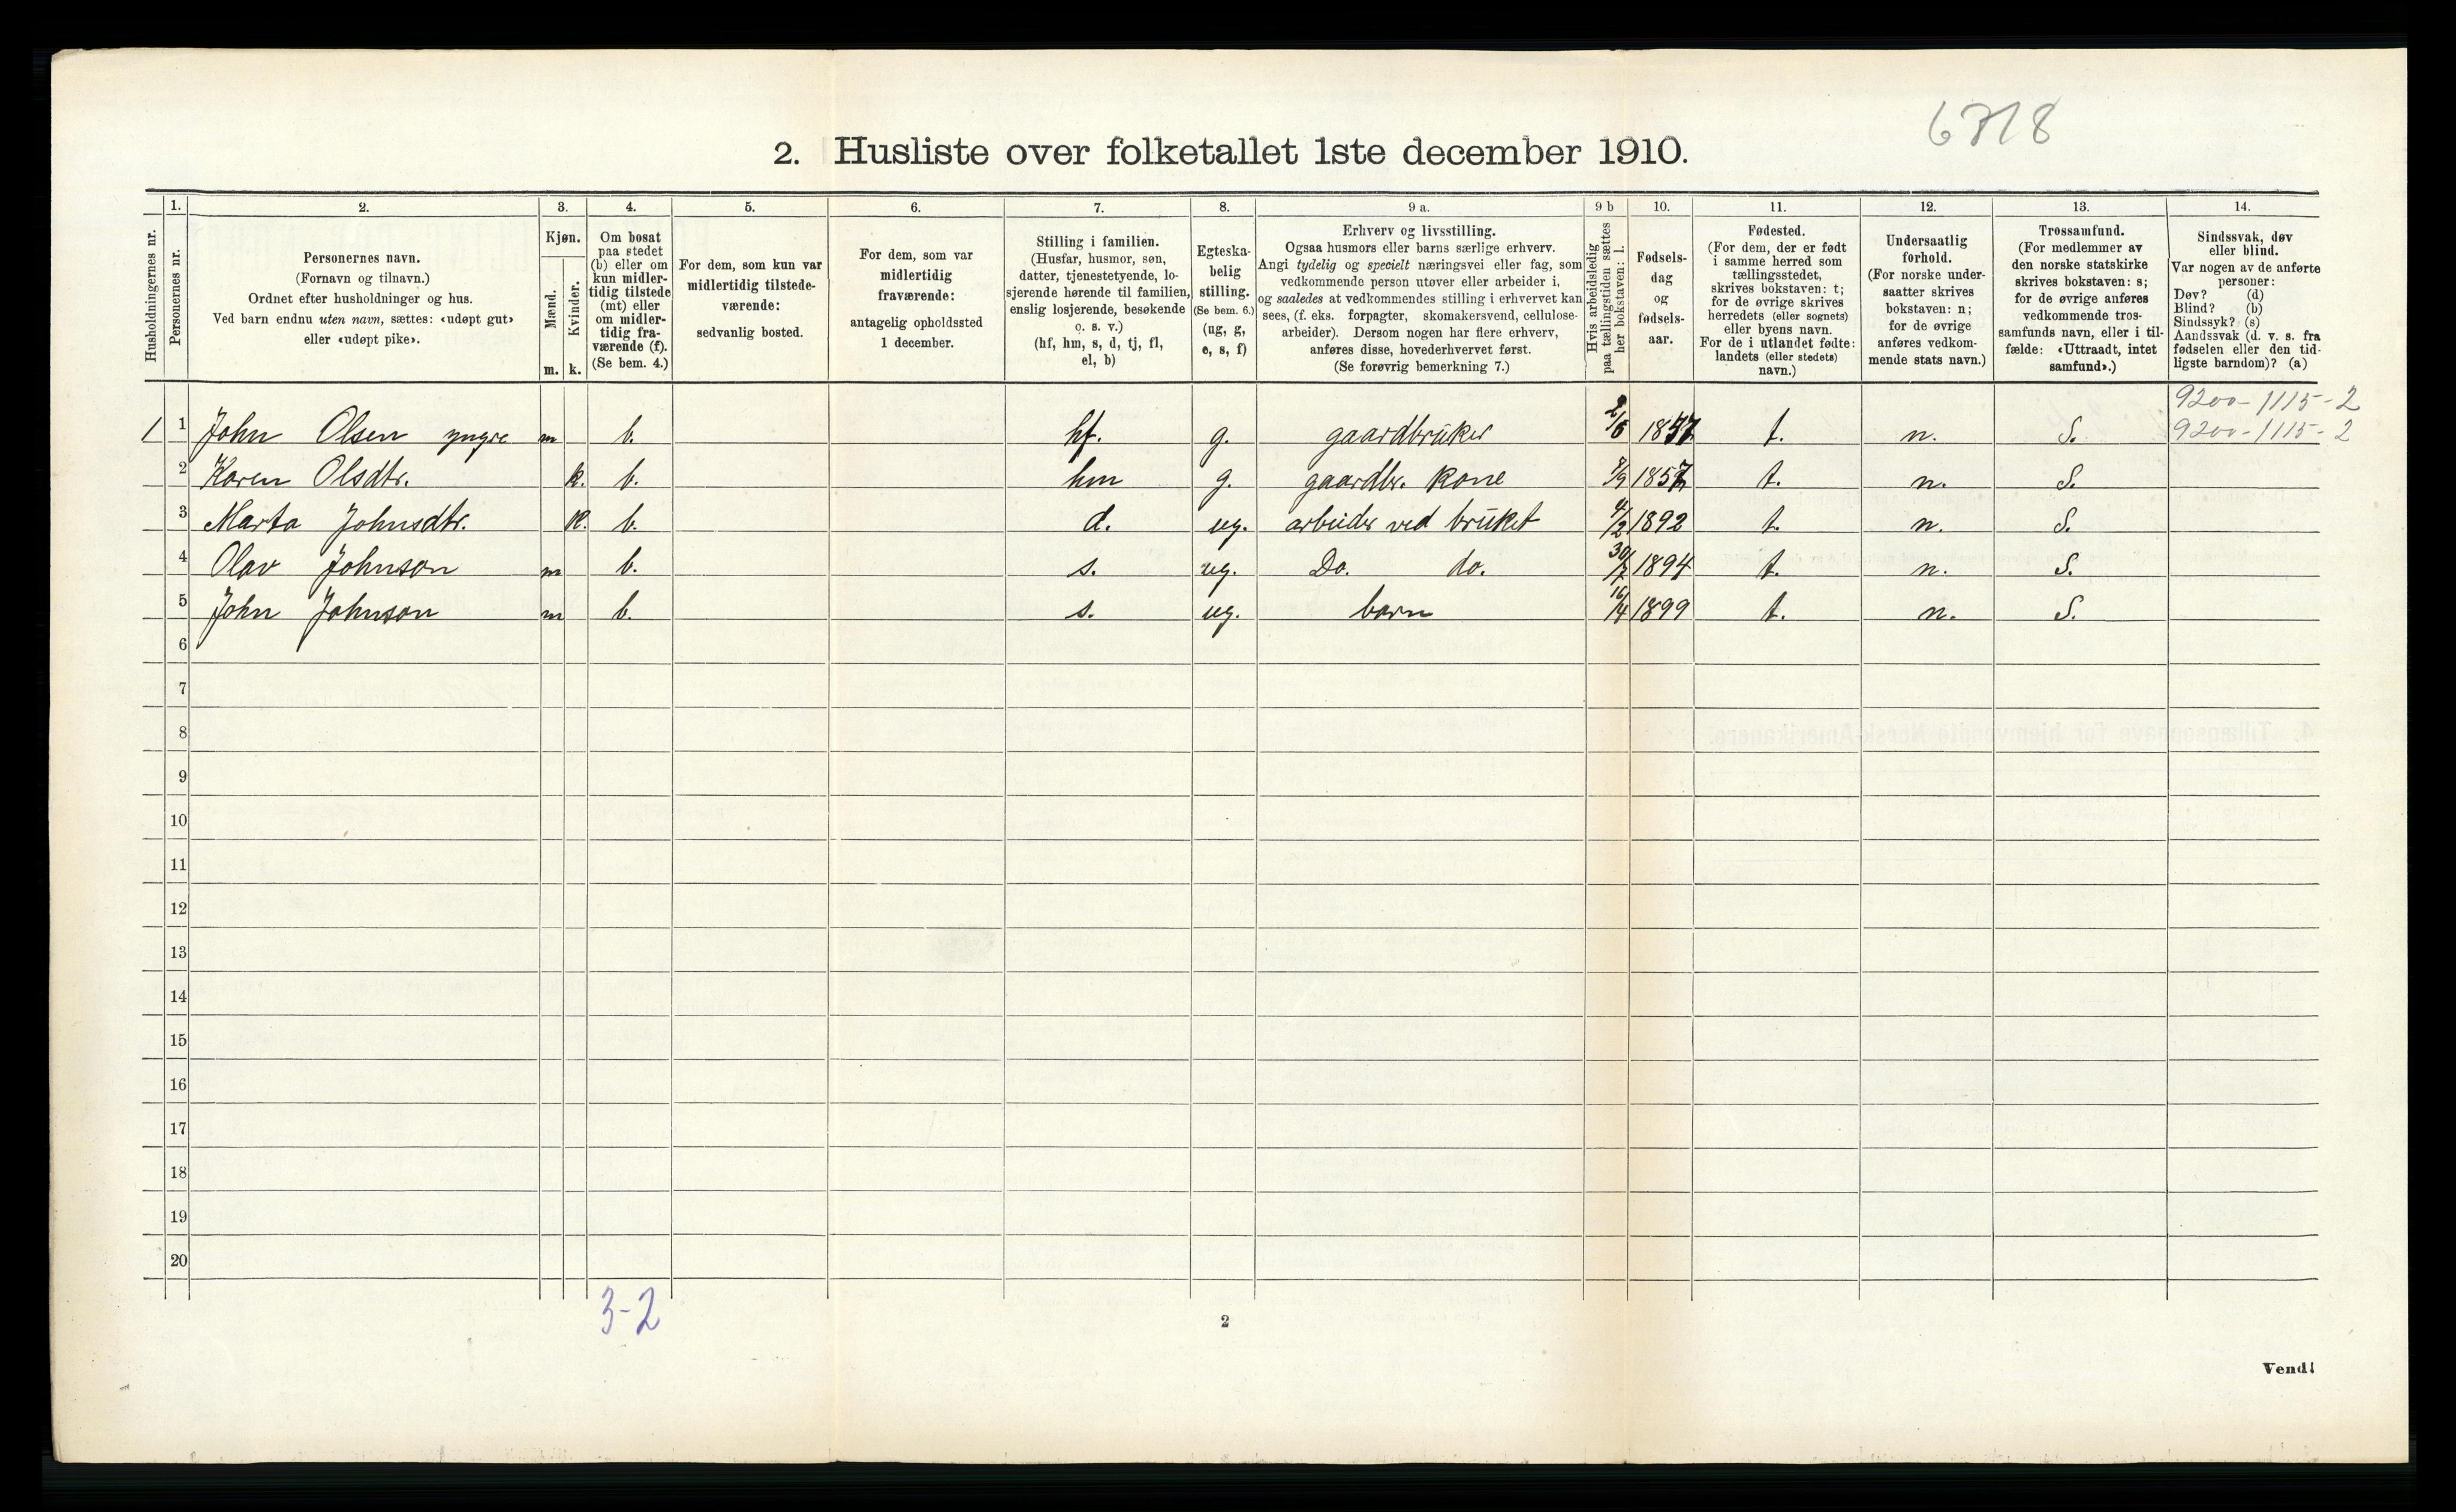 6718
2. Husliste over folketallet 1ste december 1910.
1. 2. 3. 4. 5. 6. 7. 8. 9 a. 9 b 10. 11. 12. 13. 14.
Husholdningernes nr.
Personernes nr.
Personernes navn.
(Fornavn og tilnavn.)
Ordnet efter husholdninger og hus.
Ved barn endnu uten navn, sættes: «udøpt gut»
eller «udøpt pike».
Kjøn.
Mænd.
Kvinder.
m. k.
Om bosat
paa stedet
(b) eller om
kun midler-
tidig tilstede
(mt) eller
om midler-
tidig fra-
værende (f).
(Se bem. 4.)
For dem, som kun var
midlertidig tilstede-
værende:
sedvanlig bosted.
For dem, som var
midlertidig
fraværende:
antagelig opholdssted
1 december.
Stilling i familien.
(Husfar, husmor, søn,
datter, tjenestetyende, lo-
sjerende hørende til familien,
enslig losjerende, besøkende
o. s. v.)
(hf, hm, s, d, tj, fl,
el, b)
Egteska-
belig
stilling.
(Se bem. 6.)
(ug, g,
e, s, f)
Erhverv og livsstilling.
Ogsaa husmors eller barns særlige erhverv.
Angi tydelig og specielt næringsvei eller fag, som
vedkommende person utøver eller arbeider i,
og saaledes at vedkommendes stilling i erhvervet kan
sees, (f. eks. forpagter, skomakersvend, cellulose-
arbeider). Dersom nogen har flere erhverv,
anføres disse, hovederhvervet først.
(Se forøvrig bemerkning 7.)
Hvis arbeidsledig
paa tællingstiden sættes
her bokstaven: l.
Fødsels-
dag
og
fødsels-
aar.
Fødested.
(For dem, der er født
i samme herred som
tællingsstedet,
skrives bokstaven: t;
for de øvrige skrives
herredets (eller sognets)
eller byens navn.
For de i utlandet fødte:
landets (eller stedets)
navn.)
Undersaatlig
forhold.
(For norske under-
saatter skrives
bokstaven: n;
for de øvrige
anføres vedkom-
mende stats navn.)
Trossamfund.
(For medlemmer av
den norske statskirke
skrives bokstaven: s;
for de øvrige anføres
vedkommende tros-
samfunds navn, eller i til-
fælde: «Uttraadt, intet
samfund».)
Sindssvak, døv
eller blind.
Var nogen av de anførte
personer:
Døv? (d)
Blind? (b)
Sindssyk? (s)
Aandssvak (d. v. s. fra
fødselen eller den tid-
ligste barndom)? (a)
9200-1115-2
1 1 John Olsen yngre m b. hf. g. gaardbruker t. n. S. 9200-1115-2
2 Karen Olsdtr. k. b. hm g. gaardbr. kone 7/9 1857 t. n. S.
3 Marta Johnsdtr. k. b. d. ug. arbeider ved bruket 4/2 1892 t. n. S.
4 Olav Johnson m b. s. ug. Do. do. 30/7 1894 t. n. S.
5 John Johnson m b. s. ug. barn 16/4 1899 t. n. S.
6
7
8
9
10
11
12
13
14
15
16
17
18
19
20
3-2
2
Vend!